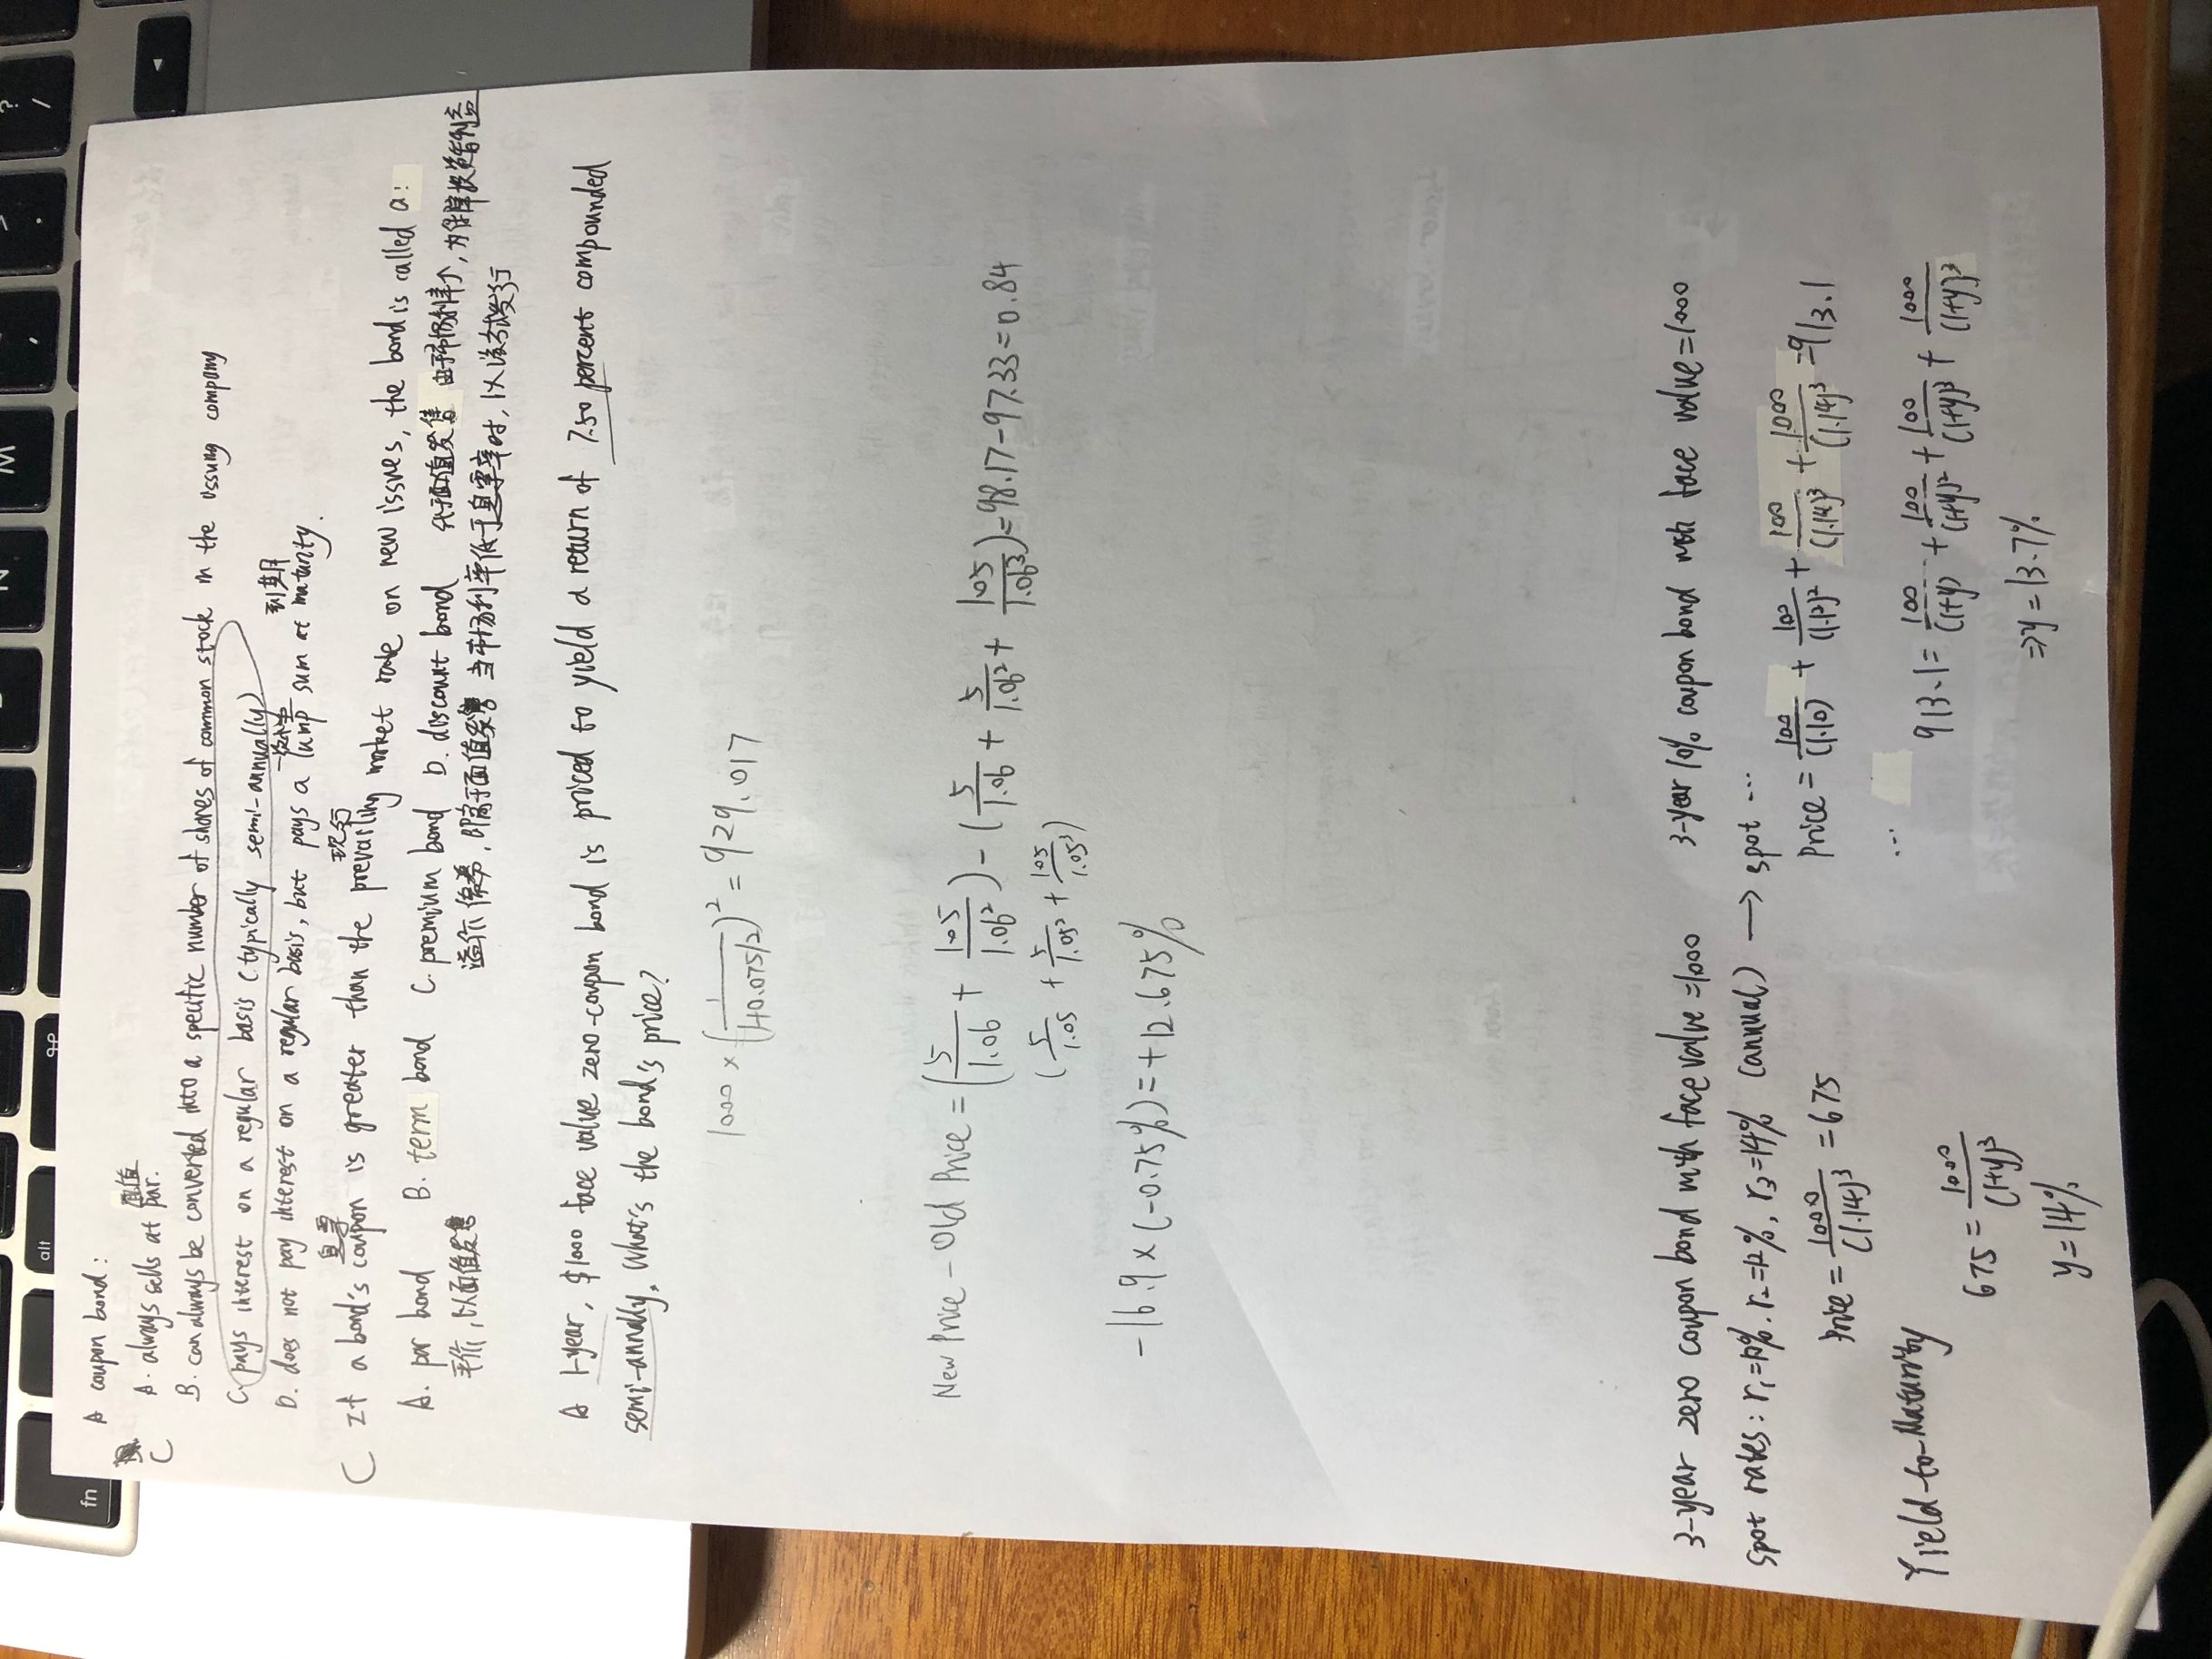 alt
⌘
fn
N
M
?
/
A coupon bond:
C
面值
A. always sells at par.
B. can always be converted into a specific number of shares of common stock in the ussung company
C. pays interest on a regular basis (typically semi-annually)
到期
D. does not pay interest on a regular basis, but pays a lump sum at maturity.
息票 现行
C If a bond's coupon is greater than the prevailing market rate on new issues, the bond is called a:
A. par bond B. term bond C. premium bond D. discount bond 代于面值发售 由于市场利率↑, 为保障投资者利益
平价, 以面值发售 溢价债券, 即高于面值发售 当市场利率低于息票率时, 以该方式发行
A 1-year, $1000 face value zero-coupon bond is priced to yield a return of 7.50 percent compounded
semi-annally. What's the bond's price?
1000 × (1/(1+0.075/2))² = 929.017
New Price - Old Price = (5/1.06 + 105/1.06²) - (5/1.06 + 5/1.06² + 105/1.06³) = 98.17 - 97.33 = 0.84
(5/1.05 + 5/1.05² + 105/1.05³)
-16.9 × (-0.75%) = +12.675%
3-year zero coupon bond with face value = 1000 3-year 10% coupon bond with face value = 1000
spot rates: r₁=10%. r₂=12%, r₃=14% (annual) → spot ...
Price = 1000/(1.14)³ = 675 Price = 100/(1.10) + 100/(1.12)² + 100/(1.14)³ + 1000/(1.14)³ = 913.1
Yield-to-Maturity ...
675 = 1000/(1+y)³ 913.1 = 100/(1+y) + 100/(1+y)² + 100/(1+y)³ + 1000/(1+y)³
y = 14% ⇒ y = 13.7%